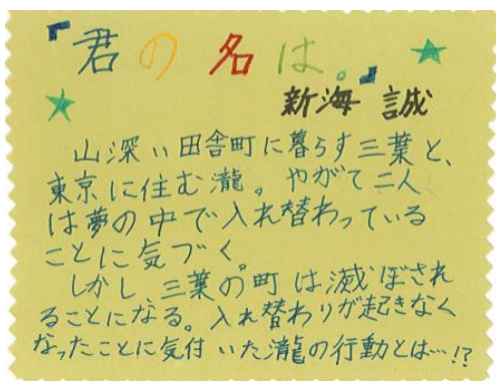 『君の名は。』
新海 誠
山深い田舎町に暮らす三葉と、
東京に住む瀧。やがて二人
は夢の中で入れ替わっている
ことに気づく。
しかし三葉の町は滅ぼされ
ることになる。入れ替わりが起きなく
なったことに気付いた瀧の行動とは…!?